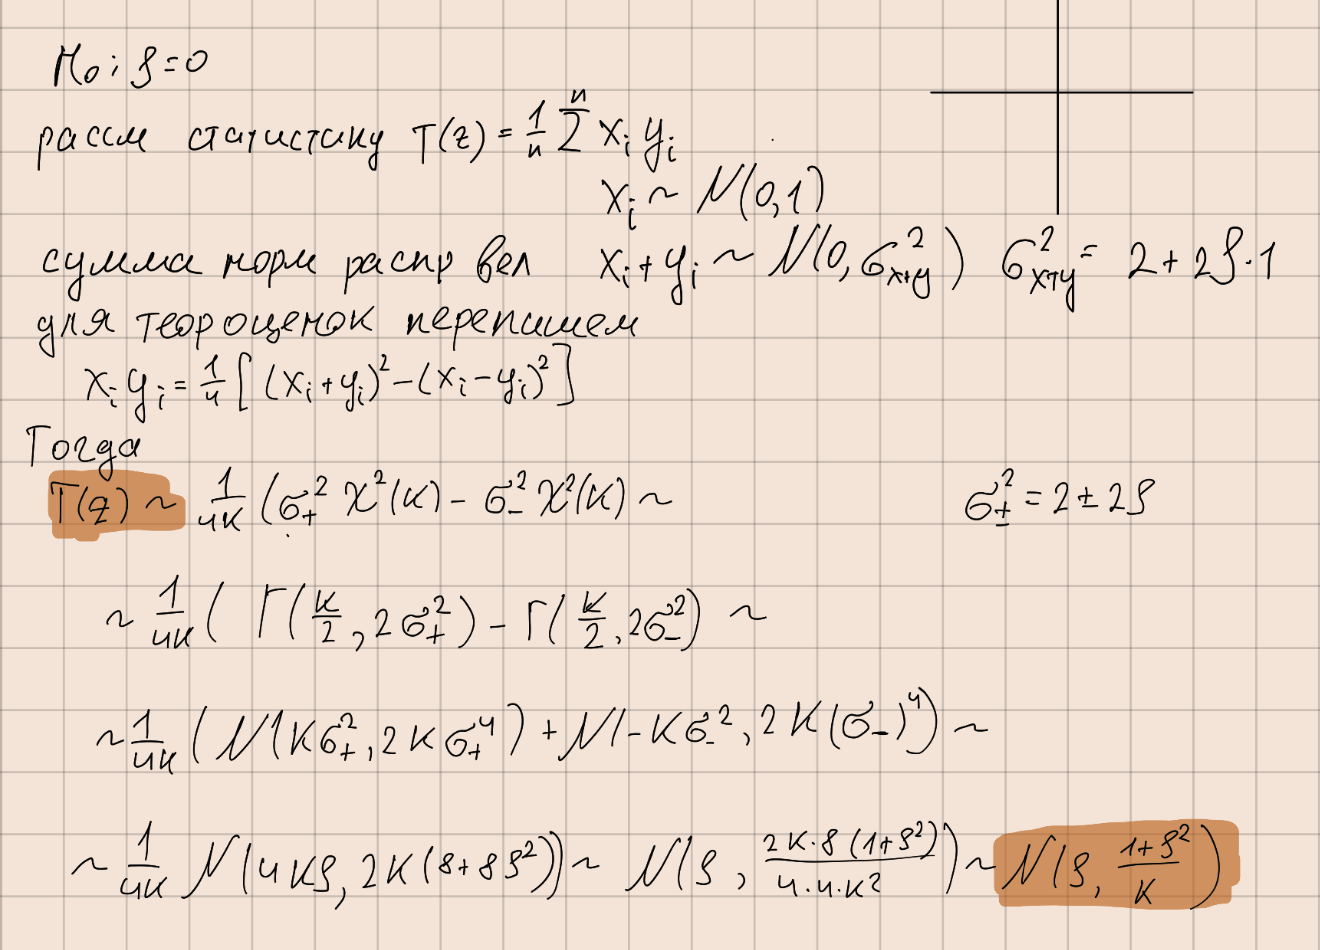 H₀: ρ=0
рассм статистику T(z) = 1/n Σⁿ xᵢ yᵢ
xᵢ ~ N(0,1)
сумма норм распр вел xᵢ+yᵢ ~ N(0, σ²ₓ₊ᵧ) σ²ₓ₊ᵧ = 2+2ρ·1
для теор оценок перепишем
xᵢ yᵢ = 1/4 [(xᵢ+yᵢ)² − (xᵢ−yᵢ)²]
Тогда
T(z) ~ 1/4K (σ₊² χ²(K) − σ₋² χ²(K) ~ σ±² = 2 ± 2ρ
~ 1/4K ( Γ(K/2, 2σ₊²) − Γ(K/2, 2σ₋²) ~
~ 1/4K ( N(Kσ₊², 2Kσ₊⁴) + N(−Kσ₋², 2K(σ₋)⁴) ~
~ 1/4K N(4Kρ, 2K(8+8ρ²)) ~ N(ρ, 2K·8(1+ρ²)/4·4·K²) ~ N(ρ, 1+ρ²/K)